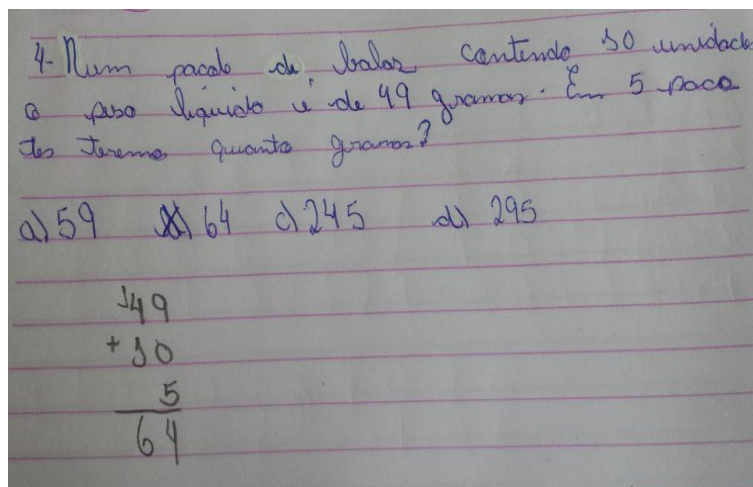 4- Num pacote de balas contendo 10 unidades
o peso líquido é de 49 gramas. Em 5 paco
tes teremos quanto gramas?
a) 59 b) 64 c) 245 d) 295
149
+ 10
5
64